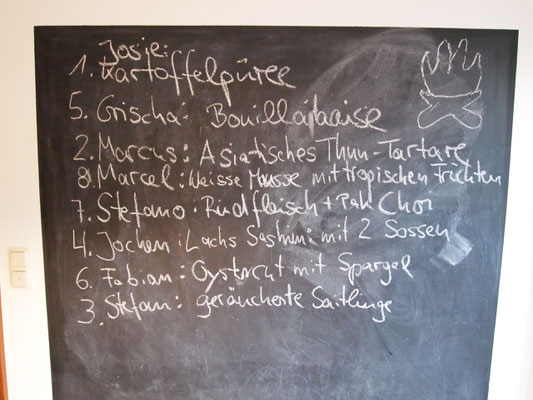 Josie:
1. Kartoffelpüree
5. Grischa: Bouillabaise
2. Marcus: Asiatisches Thun-Tartare
8. Marcel: Weisse Mousse mit tropischen Früchten
7. Stefano: Rindfleisch + Pak Choi
4. Jochen: Lachs Sashimi mit 2 Sossen
6. Fabian: mit Spargel
3. Stefan: geräucherte Saiblinge